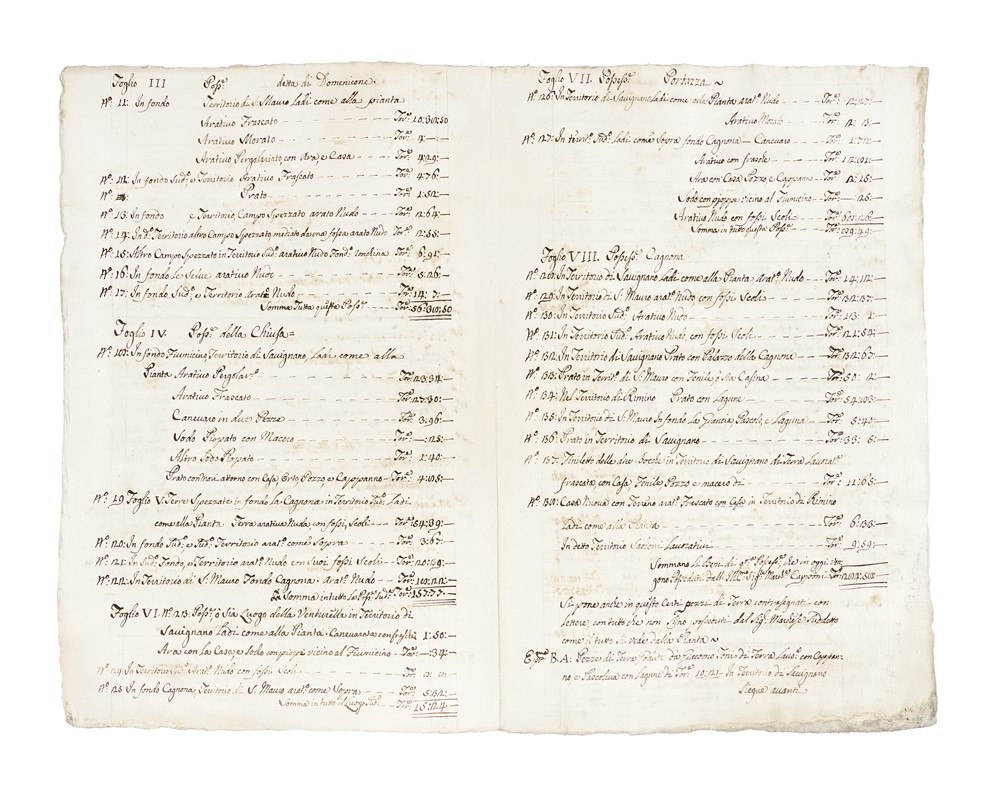 Foglio III Poss.e detta di Domenicone
N.o 11: In fondo Territorio di S. Mauro Ladi come alla pianta
Arativo Frascato - - - - - - Tor.e 10:30:50
Arativo Morato - - - - - Tor.e 4:—
Arativo Pergolariato, con Ara, e Casa - - - - Tor.e 4:29:—
N.o 12: In fondo Sud.o e Territorio Arativo Frascato - - - - Tor.e 4:76—
N.o Prato - - - - Tor.e 1:52:
N.o 13: In fondo e Territorio, Campo Spezzato arato Nudo - - - Tor.e 12:64:—
N.o 14: In d.o Territorio altro Campo Spezzato, mediato da una fossa arato Nudo Tor.e 2:55:—
N.o 15: Altro Campo Spezzato in Territorio Sud.o arativo Nudo Fond.o Tor.e 6:91:—
N.o 16: In fondo le Selve arativo Nudo - - - - - - Tor.e 5:26:—
N.o 17: In fondo Sud.o, e Territorio Arato Nudo - - - - - - Tor.e 14: 7:—
Somma Tutta questa Poss.e - - - Tor.e 56:
Foglio IV. Poss.e della Chiusa =
N.o In fondo Fiumicino Territorio di Savignano, Ladi come alla
Pianta Arativo Pergolar.o - - - - - Tor.e 23:34:—
Arativo Frascato - - - - - Tor.e 27:30:—
Canevaro in due Pezze - - - - - Tor.e 3:96:—
Sodo Pioppato con Macero - - - - - Tor.e —:25:—
Altro Sodo Pioppato - - - - - Tor.e 1:40:—
Prato contiene attorno con Casa, Orto, Pozzo e Cappanno - - Tor.e 4:
N.o 19 Foglio V. Terre Spezzate in fondo la Cagnona in Territorio Sud.o Ladi
come alla Pianta Terra arativa Nuda, con fossi, Scoli - - - Tor.e 54:39:—
N.o 20: In fondo Sud.o e Sud.o Territorio arat.o come Sopra - - - Tor.e 3:67:—
N.o 21: In Sud.o Fondo, e Territorio arat.o Nudo con suoi fossi Scoli - - Tor.e 20:59:—
N.o 22: In Territorio di S. Mauro Fondo Cagnona Arat.o Nudo - - - Tor.e
La Somma in tutto la Poss.e Sud.a Tor.e 157:77:—
Foglio VI. N.o 23: Poss.e ò Sia Luogo della Venturella in Territorio di
Savignano Ladi come alla Pianta. Canevarata con fossi 1:50:—
Ara con la Casa, e Sodo con pioppi vicino al Fiumicino - Tor.e —:34:—
N.o 24: In Territorio Sud.o Arat.o Nudo con fossi Scoli - - - - - Tor.e
N.o 25 In fondo Cagnona Territorio di S. Mauro arat.o come Sopra - - - - Tor.e 5:
Somma in tutto il Luogo Sud.o - - - Tor.e 15:24—
Foglio VII. Possess.e Portazza ~
N.o 26: In Territorio di Savignano Ladi come alla Pianta arat.o Nudo - - - - Tor.e 12:27:—
Arativo Morato - - - Tor.e 12: 13:—
N.o 27: In territ.o Sud.o Ladi come Sopra fondo Cagnona — Canevaro - - - Tor.e 1:71:—
Arativo con frasche - - - Tor.e
Ara con Casa Pozzo, e Cappanno - - Tor.e 12:15:—
Sodo con pioppe vicino al Fiumicino - - Tor.e —:25:
Arativo Nudo con fossi Scoli - - Tor.e
Somma in tutto questa Poss.e - - Tor.e
Foglio VIII. Possess.e Cagnona
N.o In Territorio di Savignano Ladi come alla Pianta Arat.o Nudo - - - Tor.e 14:12:—
N.o 29: In Territorio di S. Mauro arat.o Nudo con fossi Scoli - - - - Tor.e
N.o 30: In Territorio Sud.o Arativo Nudo - - - - Tor.e 13: 1:—
N.o 31: In Territorio Sud.o Arativo Nudo con fossi Scoli - - - - - Tor.e 21:54:—
N.o 32: In Territorio di Savignano Prato con Palazzo della Cagnona - - - - Tor.e
N.o 33: Prato in Territ.o di S. Mauro con Fenile, ò Sia Casina - - - - Tor.e 50: 2:—
N.o 34: Nel Territorio di Rimino Prato con Lagune - - - - Tor.e 54:03:—
N.o 35: In Territorio di S. Mauro In fondo la Grancia Pascolo, e Laguna - - - Tor.e 5:40:—
N.o 36: Prato in Territorio di Savignano - - - - - - - Tor.e 33: 5:—
N.o 37: delle due bocche in Territorio di Savignano di Terra Lavorat.a
frascata, con Casa Fenile Pozzo e macero di - - - - Tor.e 11:65:—
N.o Casa Nuova con Terreno arat.o Frascato con Casa in Territorio di Rimino
Ladi come alla Pianta - - - - Tor.e 6:33:—
In detto Territorio Lavorativi - - - - Tor.e 9:59:—
Sommano li Beni di q.te Possess.e che in oggi ven-
gono Posseduti dall' Ill.mo Sig.r March.e Capponi Tor.e
Si pone anche in questo Certi pezzi di Terra contrassegnati con
Lettere, con tutto che non Siino posseduti dal Sig. Marchese Predetto
come il tutto Si vede dalla Pianta ~
E p.mo B. A: Pezzo di Terra da Giacomo Tonti di Terra Lav.a con Cappan-
no e Pascoliva con Lagune di Tor.e 19:21 - In Territorio di Savignano
Siegue avanti